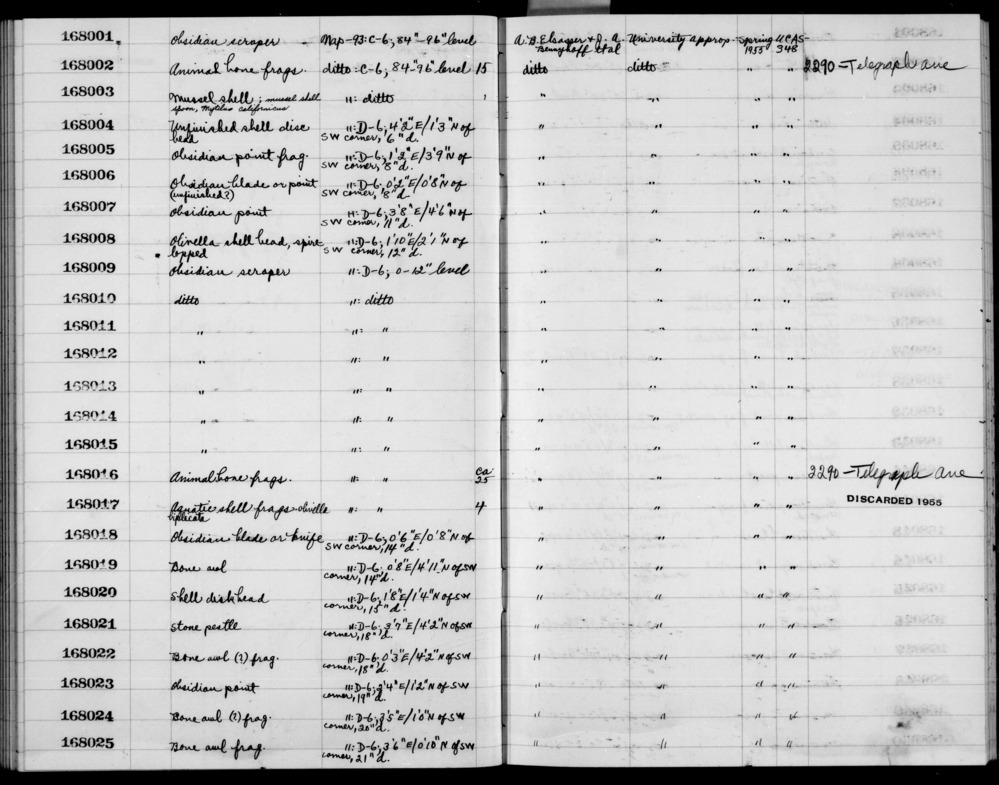 168001 Obsidian scraper Nap-93: C-6; 84"-96" level A.B. Elsasser & J.A. Bennyhoff et al University approp. Spring 1955 UCAS-348
168002 Animal bone frags. ditto: C-6, 84"-96" level 15 ditto ditto " " 2290-Telegraph ave
168003 Mussel shell; mussel shell spoon, Mytilus californicus ": ditto " " " "
168004 Unfinished shell disc bead ": D-6; 4'2" E/1'3" N of SW corner, 6" d. " " " "
168005 Obsidian point frag. ": D-6; 1'2" E/3'9" N of SW corner, 8" d. " " " "
168006 Obsidian blade or point (unfinished?) ": D-6; 0'2" E/0'8" N of SW corner, 8" d. " " " "
168007 Obsidian point ": D-6; 3'8" E/4'6" N of SW corner, 11" d. " " " "
168008 Olivella shell bead, spire lopped ": D-6; 1'10" E/2'1" N of SW corner, 12" d. " " " "
168009 Obsidian scraper ": D-6; 0-12" level " " " "
168010 ditto ": ditto " " " "
168011 " ": " " " " "
168012 " ": " " " " "
168013 " ": " " " " "
168014 " ": " " " " "
168015 " ": " " " " "
168016 Animal bone frags. ": " ca 25 " " " " 2290-Telegraph ave
168017 Aquatic shell frags-olivella biplicata ": " 4 " " " " DISCARDED 1955
168018 Obsidian blade or knife ": D-6; 0'6" E/0'8" N of SW corner, 14" d. " " " "
168019 Bone awl ": D-6; 0'8" E/4'11" N of SW corner, 14" d. " " " "
168020 Shell disk bead ": D-6; 1'8" E/1'4" N of SW corner, 15" d. " " " "
168021 Stone pestle ": D-6; 3'7" E/4'2" N of SW corner, 18" d. " " " "
168022 Bone awl (?) frag. ": D-6; 0'3" E/4'2" N of SW corner, 18" d. " " " "
168023 Obsidian point ": D-6; 2'4" E/1'2" N of SW corner, 19" d. " " " "
168024 Bone awl (?) frag. ": D-6; 3'5" E/1'0" N of SW corner, 20" d. " " " "
168025 Bone awl frag. ": D-6; 3'6" E/0'10" N of SW corner, 21" d. " " " "